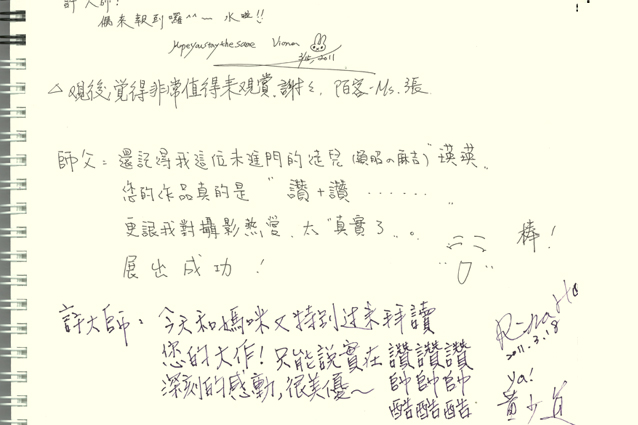 許大師!
偶來報到囉^^~ 水啦!!
Hope you stay the same Vivian
2011
△ 觀後,覺得非常值得來觀賞.謝々. 陌客-Ms.張
師父: 還記得我這位未進門的徒兒(の麻吉)"瑛瑛.
您的作品真的是 "讚+讚 ......
更讓我對攝影熱愛. 太"真實了...。
棒!
展出成功!
許大師: 今天和媽咪又特別过來拜讀
您的大作!只能說實在讚讚讚
深刻的感動,很美優~ 帥帥帥
酷酷酷
2011.3.18
ya!